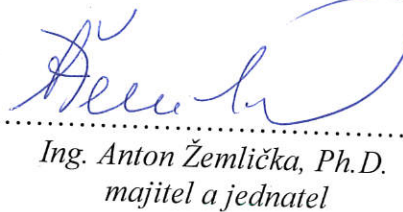 Ing. Anton Žemlička, Ph.D.
majitel a jednatel